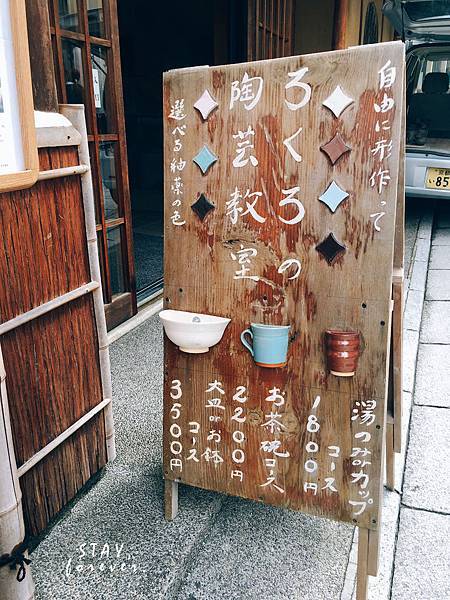 自由に形作って
ろくろの
陶芸教室
選べる釉薬の色
湯のみカップ
1800円コース
お茶碗コース
2200円
大皿orお鉢
コース
3500円
STAY
forever